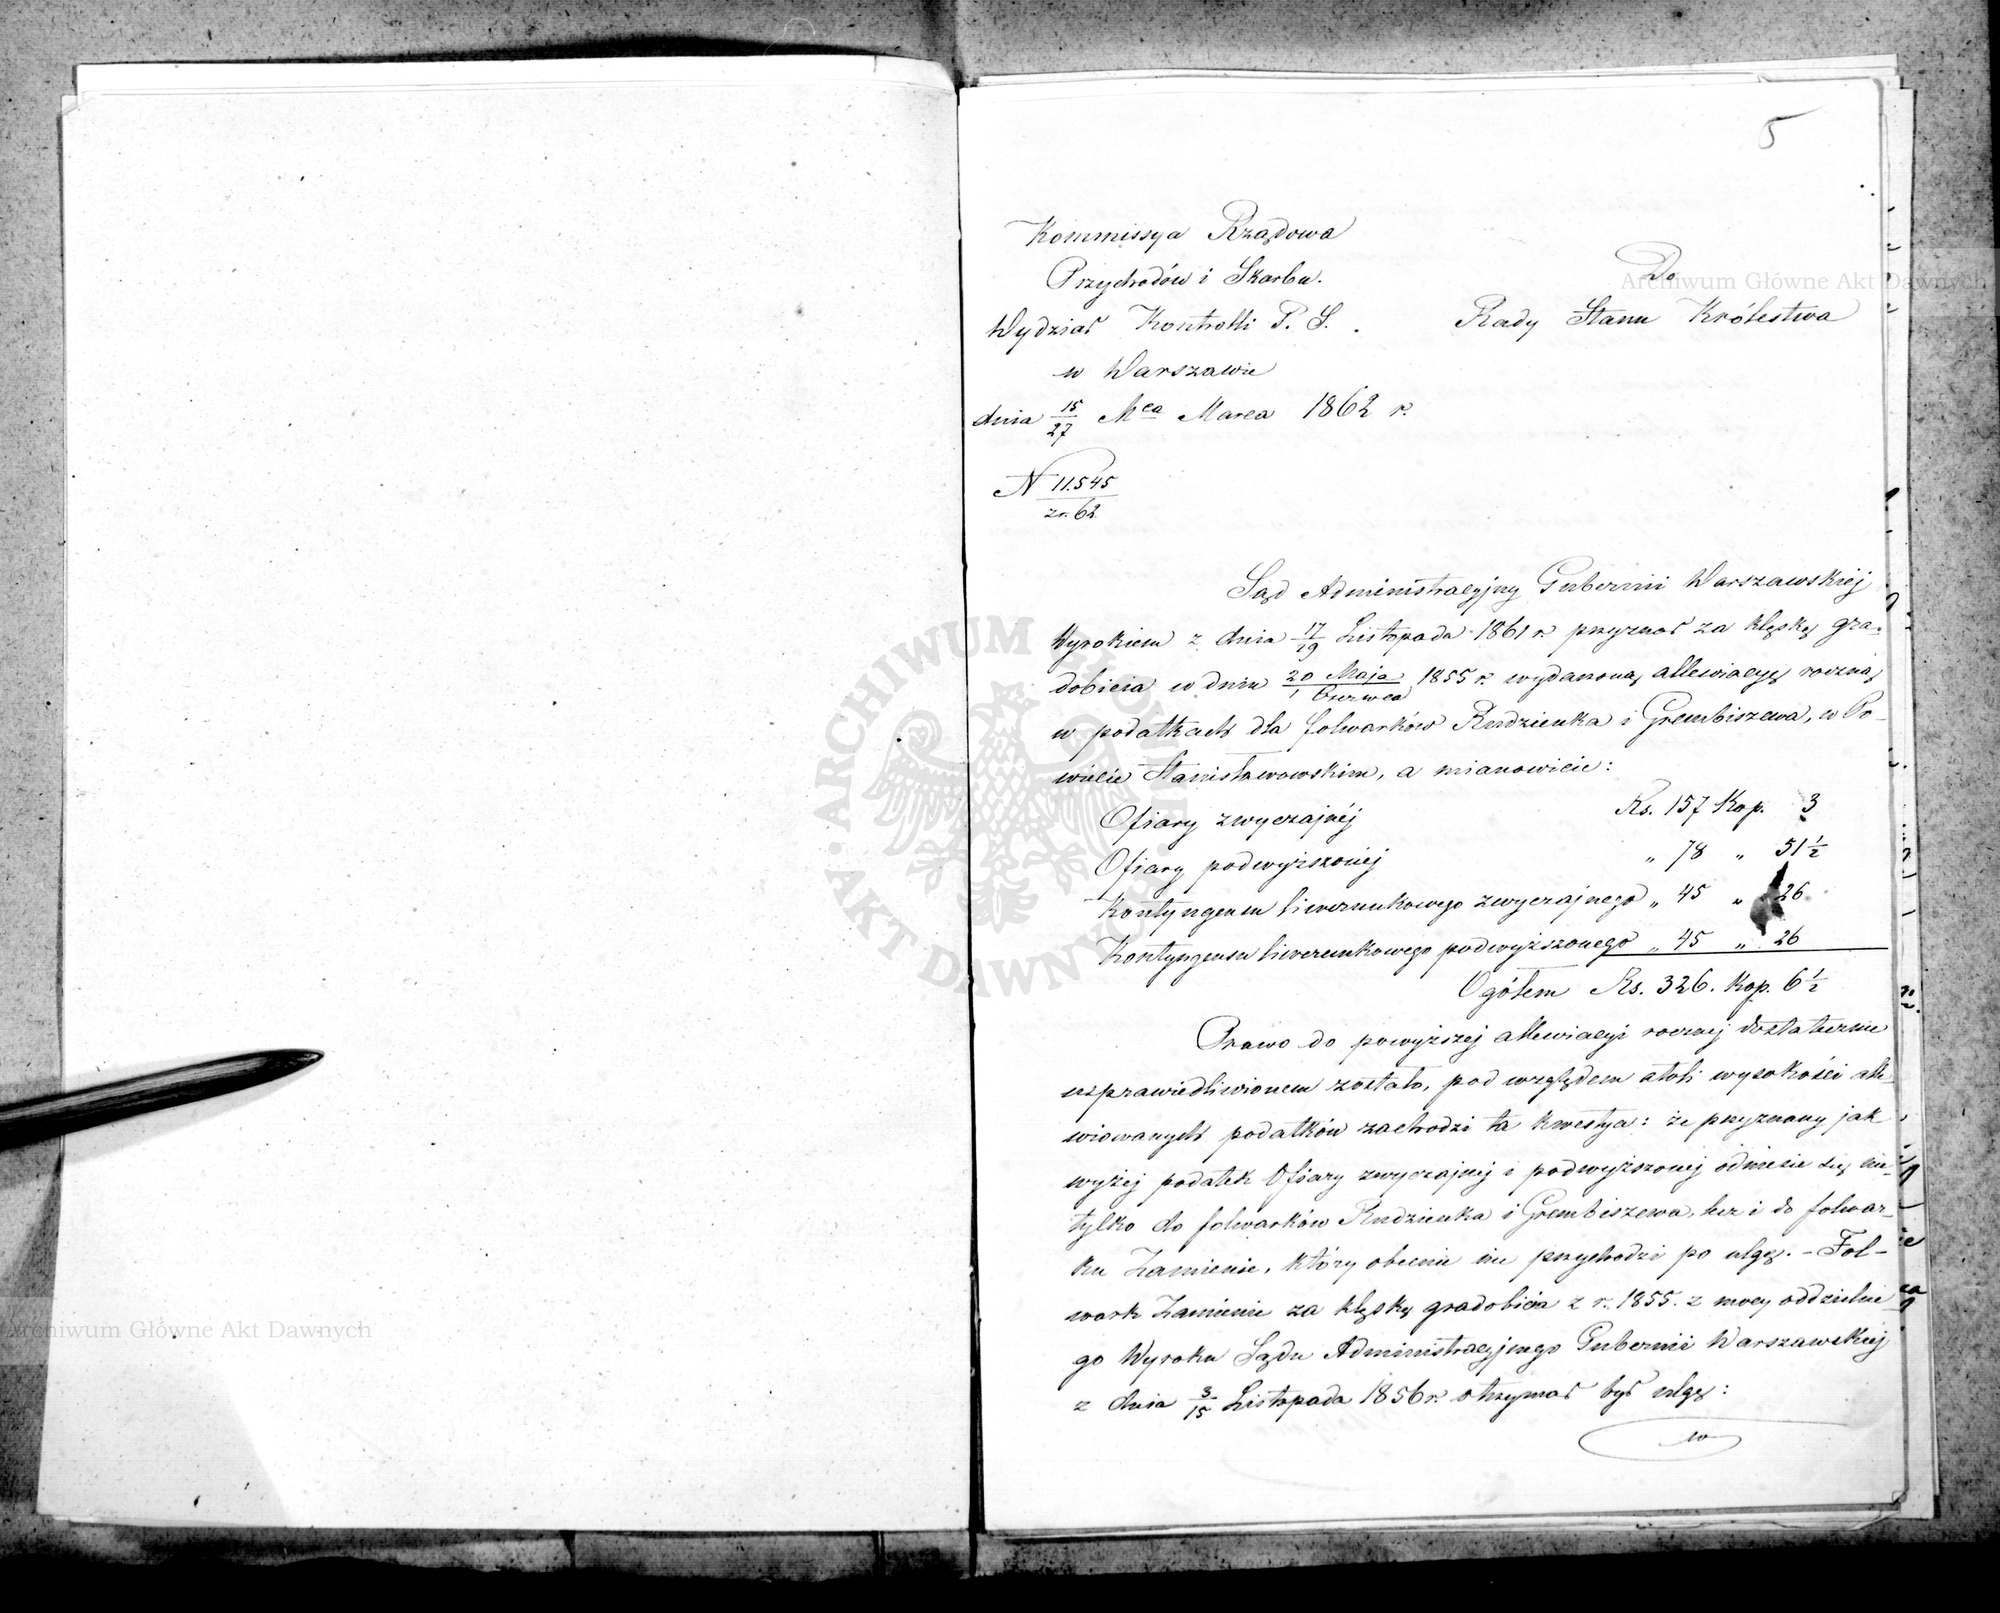 5
Kommissya Rządowa
Przychodów i Skarbu.
Wydział Kontrolli P. S.
w Warszawie
dnia 15/27 Mca Marca 1862 r.
N 11.545
z r. 62.
Do
Rady Stanu Królestwa
Sąd Administracyjny Gubernii Warszawskiej
Wyrokiem z dnia 17/29 Listopada 1861 r. przyznał za klęskę gra-
dobicia w dniu 20 Maja/1 Czerwca 1855 r. wydarzoną allewiacyę roczną
w podatkach dla folwarków Rudzienka i Grembiszewa, w Po-
wiecie Stanisławowskim, a mianowicie:
Ofiary zwyczajnéj Rs. 157 Kop. 3
Ofiary podwyższonéj " 78 " 51 1/2
Kontyngensu liwerunkowego zwyczajnego " 45 " 26
Kontyngensu liwerunkowego podwyższonego " 45 " 26
Ogółem Rs. 326. Kop. 6 1/2
Prawo do powyższej allewiacyi rocznej dostatecznie
usprawiedliwionem zostało, pod względem atoli wysokości alle-
wiowanych podatków zachodzi ta kwestya: że przyznany jak
wyżej podatek Ofiary zwyczajnej i podwyższonej odniesie się nie-
tylko do folwarków Rudzienka i Grembiszewa, lecz i do folwar-
ku Zamienie, który obecnie nie przychodzi po ulgę. - Fol-
wark Zamienie za klęskę gradobicia z r. 1855. z mocy oddzielne-
go Wyroku Sądu Administracyjnego Gubernii Warszawskiej
z dnia 3/15 Listopada 1856 r. otrzymał był ulgę:
w
Archiwum Główne Akt Dawnych
Archiwum Główne Akt Dawnych
ARCHIWUM GŁÓWNE AKT DAWNYCH